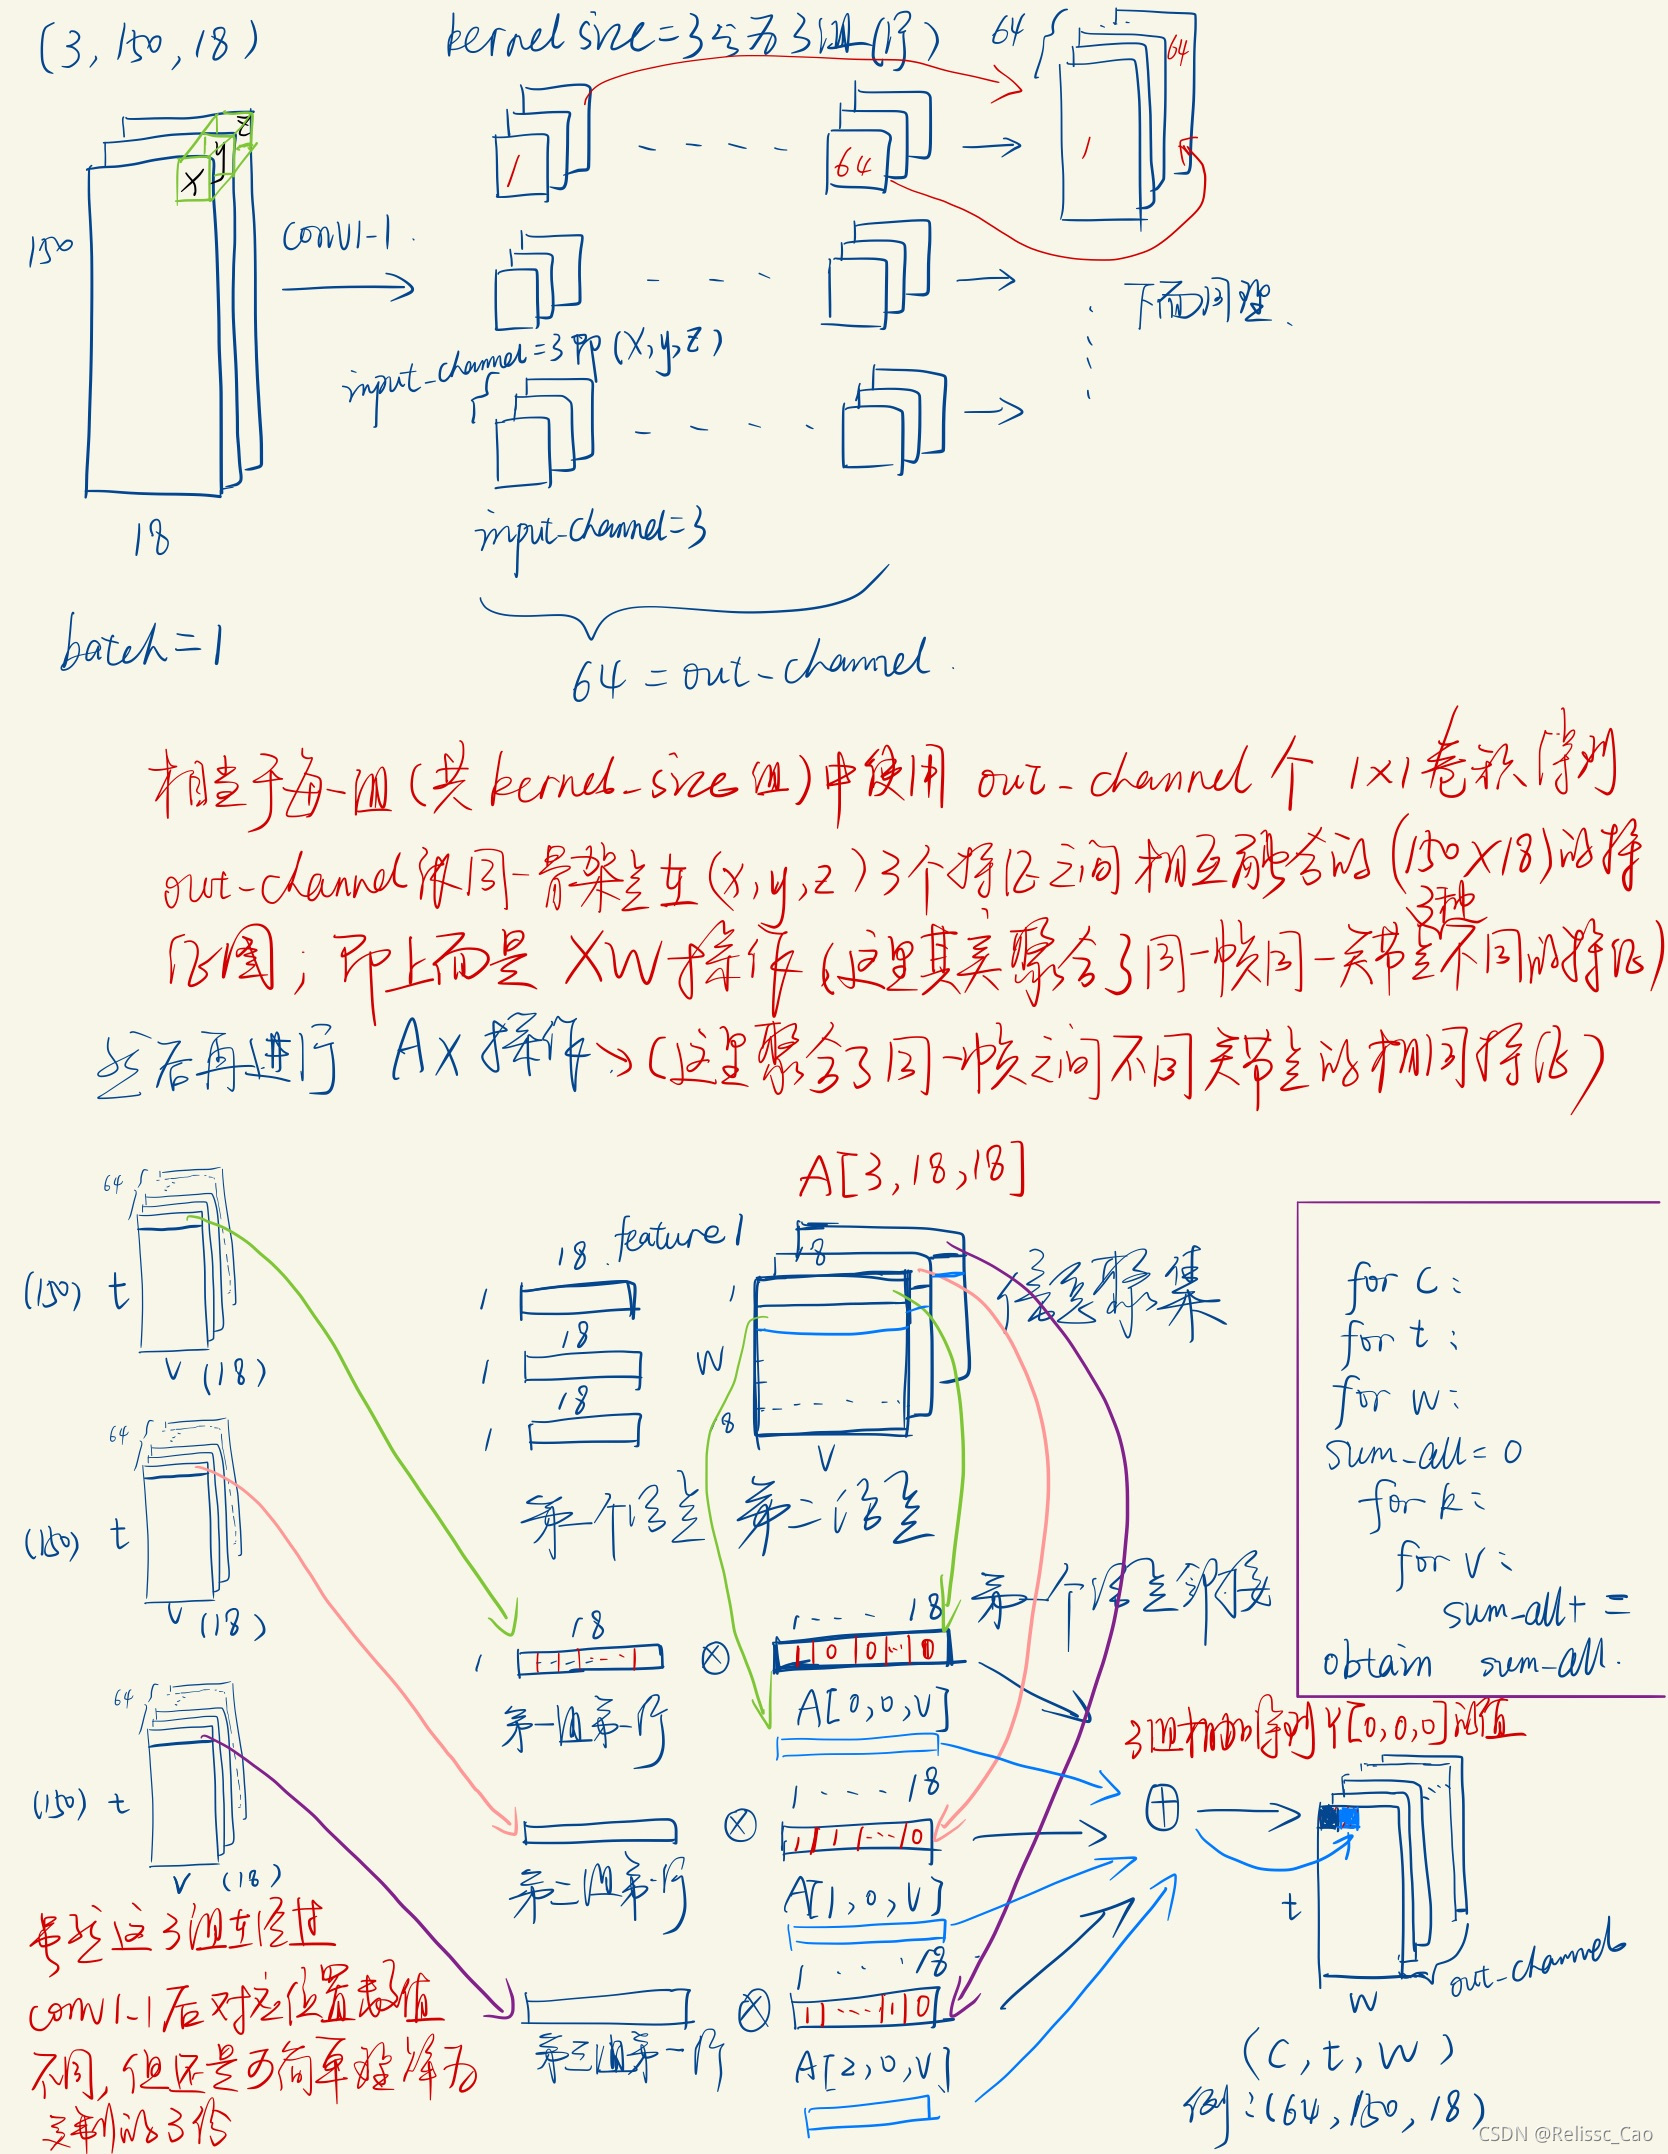 (3, 150, 18)
kernel size=3分为3组(行)
64
64
1
64
1
X
y
z
150
conv1-1
18
下面同理
input_channel=3 即(X,y,z)
input_channel=3
batch=1
64 = out_channel
相当于每一组(共kernel_size组)中使用 out_channel 个 1×1卷积得到
out-channel张同一骨架点在(x,y,z)3个特征之间相互融合的(150×18)的特
征图;即上面是 XW操作(这里其实聚合了同一帧同一关节点3种不同的特征)
然后再进行 AX操作→(这里聚合了同一帧之间不同关节点的相同特征)
A[3,18,18]
64
(150) t
V (18)
18 feature1
1
18
1
18
1
18
1
W
8
V
信息聚集
for c:
for t:
for w:
sum_all=0
for k:
for v:
sum_all+=
obtain sum_all.
64
(150) t
V (18)
第一个信息
第二信息
第一个信息邻接
18
1
第一组第一行
⊗
1 - - - - 18
1 0 0 ... 0
A[0,0,V]
64
(150) t
V (18)
3组相加得到Y[0,0,0]的值
1 - - - - 18
⊗
1 1 1 ... 0
第二组第一行
A[1,0,V]
⊕
t
W
out-channel
1 - - - - 18
⊗
1 ... 1 0
第三组第一行
A[2,0,V]
虽然这3组在经过
conv1-1后对应位置数值
不同,但还是可简单理解为
复制的3份
(C,t,W)
例:(64,150,18)
CSDN @Relissc_Cao